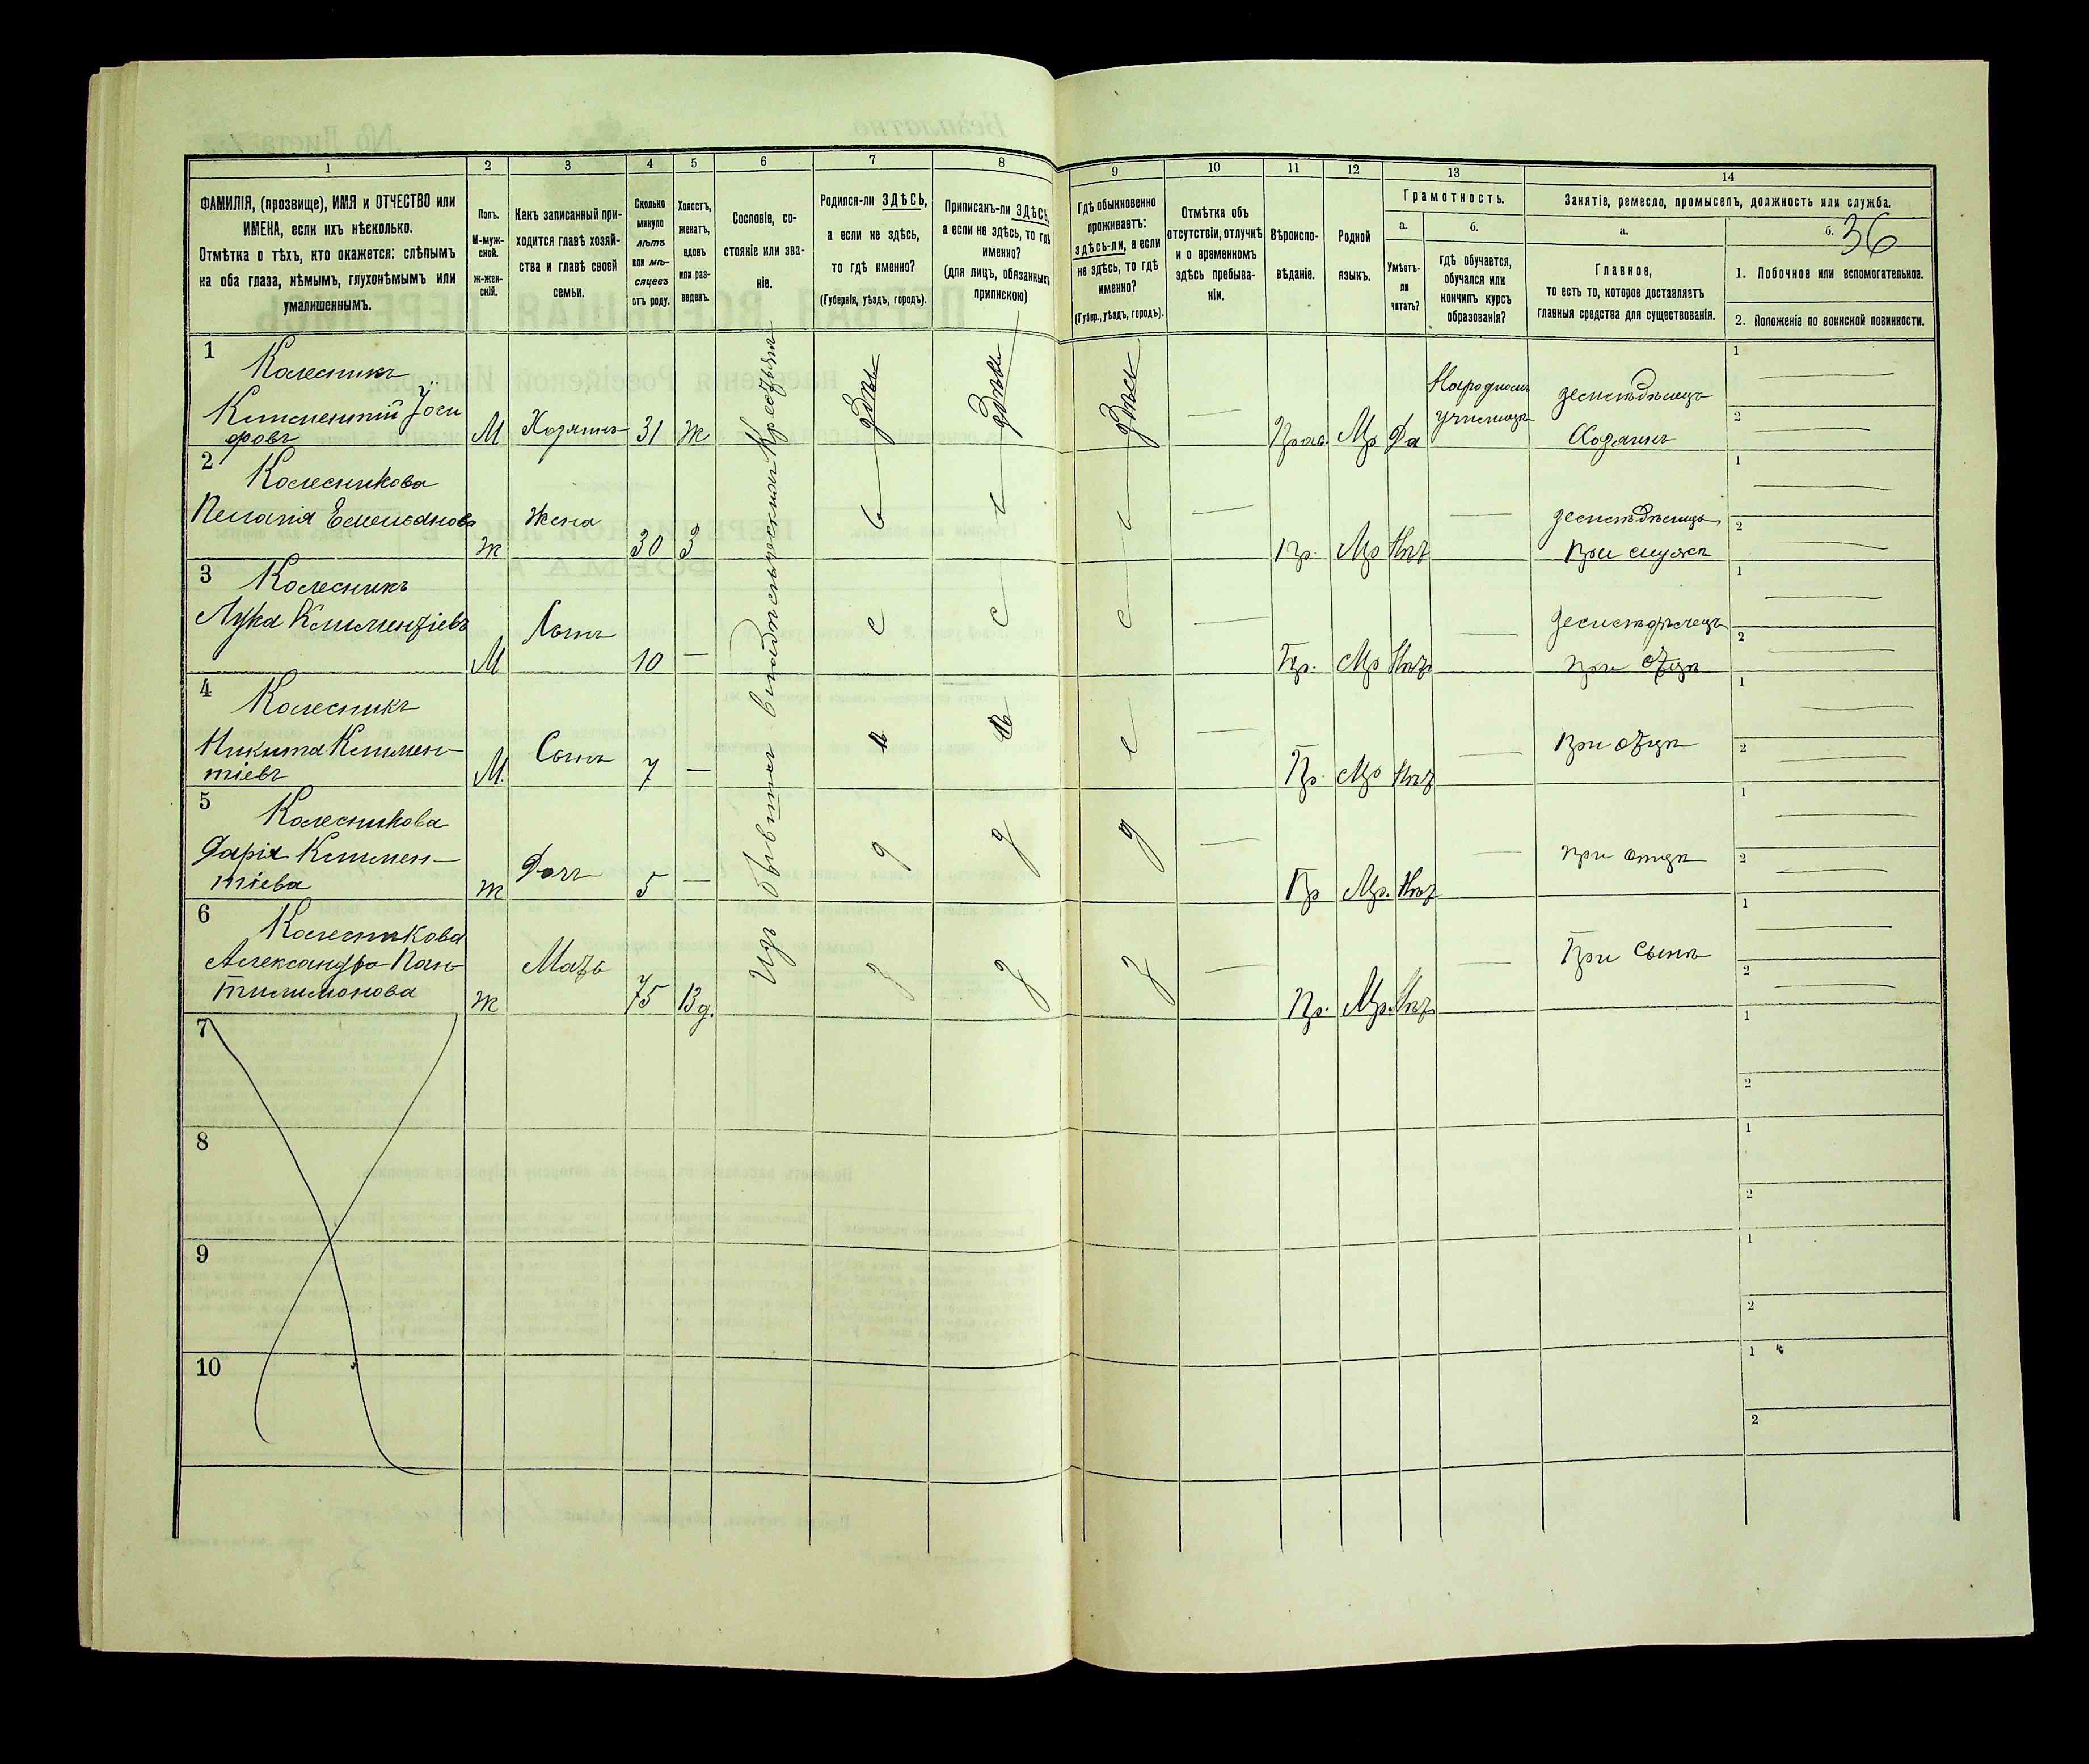 36
1
2
3
4
5
6
7
8
9
10
11
12
13
14
ФАМИЛІЯ, (прозвище), ИМЯ и ОТЧЕСТВО или
ИМЕНА, если ихъ нѣсколько.
Отмѣтка о тѣхъ, кто окажется: слѣпымъ
на оба глаза, нѣмымъ, глухонѣмымъ или
умалишеннымъ.
Полъ.
М-муж-
ской.
Ж-жен-
скій.
Какъ записанный при-
ходится главѣ хозяй-
ства и главѣ своей
семьи.
Сколько
минуло
лѣтъ
или мѣ-
сяцевъ
отъ роду.
Холостъ,
женатъ,
вдовъ
или раз-
веденъ.
Сословіе, со-
стояніе или зва-
ніе.
Родился-ли ЗДѢСЬ,
а если не здѣсь,
то гдѣ именно?
(Губернія, уѣздъ, городъ).
Приписанъ-ли ЗДѢСЬ,
а если не здѣсь, то гдѣ
именно?
(для лицъ, обязанныхъ
припискою)
Гдѣ обыкновенно
проживаетъ:
здѣсь-ли, а если
не здѣсь, то гдѣ
именно?
(Губер., уѣздъ, городъ).
Отмѣтка объ
отсутствіи, отлучкѣ
и о временномъ
здѣсь пребыва-
ніи.
Вѣроиспо-
вѣданіе.
Родной
языкъ.
Грамотность.
а.
Умѣетъ-
ли
читать?
б.
гдѣ обучается,
обучался или
кончилъ курсъ
образованія?
Занятіе, ремесло, промыселъ, должность или служба.
а.
Главное,
то есть то, которое доставляетъ
главныя средства для существованія.
б.
1. Побочное или вспомогательное.
2. Положеніе по воинской повинности.
Изъ бывшихъ владѣльческихъ Крестьянъ
1
Колесникъ
Климентій Іоси
фовъ
М
Хозяинъ
31
Ж
здѣсь
здѣсь
здѣсь
—
Прав.
Мр
Да
Народномъ
училищѣ
Земледѣлецъ
Хозяинъ
1 —
2 —
2
Колесникова
Пелагія Емельянова
Ж
Жена
30
З
—
Пр.
Мр
Нѣт
—
Земледѣлица
при мужѣ
1 —
2 —
3
Колесникъ
Лука Климентіевъ
М
Сынъ
10
—
с
с
с
—
Пр.
Мр
Нѣт
—
Земледѣлецъ
при отцѣ
1 —
2 —
4
Колесникъ
Никита Климен-
тіевъ
М.
Сынъ
7
—
—
Пр.
Мр
Нѣт
—
При отцѣ
1 —
2 —
5
Колесникова
Дарія Климен-
тіева
Ж
Дочь
5
—
—
Пр
Мр.
Нѣт
—
при отцѣ
1 —
2 —
6
Колесникова
Александра Пан-
тилимонова
Ж
Мать
75
Вд.
—
Пр.
Мр.
Нѣт
—
При Сынѣ
1 —
2 —
7
1
2
8
1
2
9
1
2
10
1
2